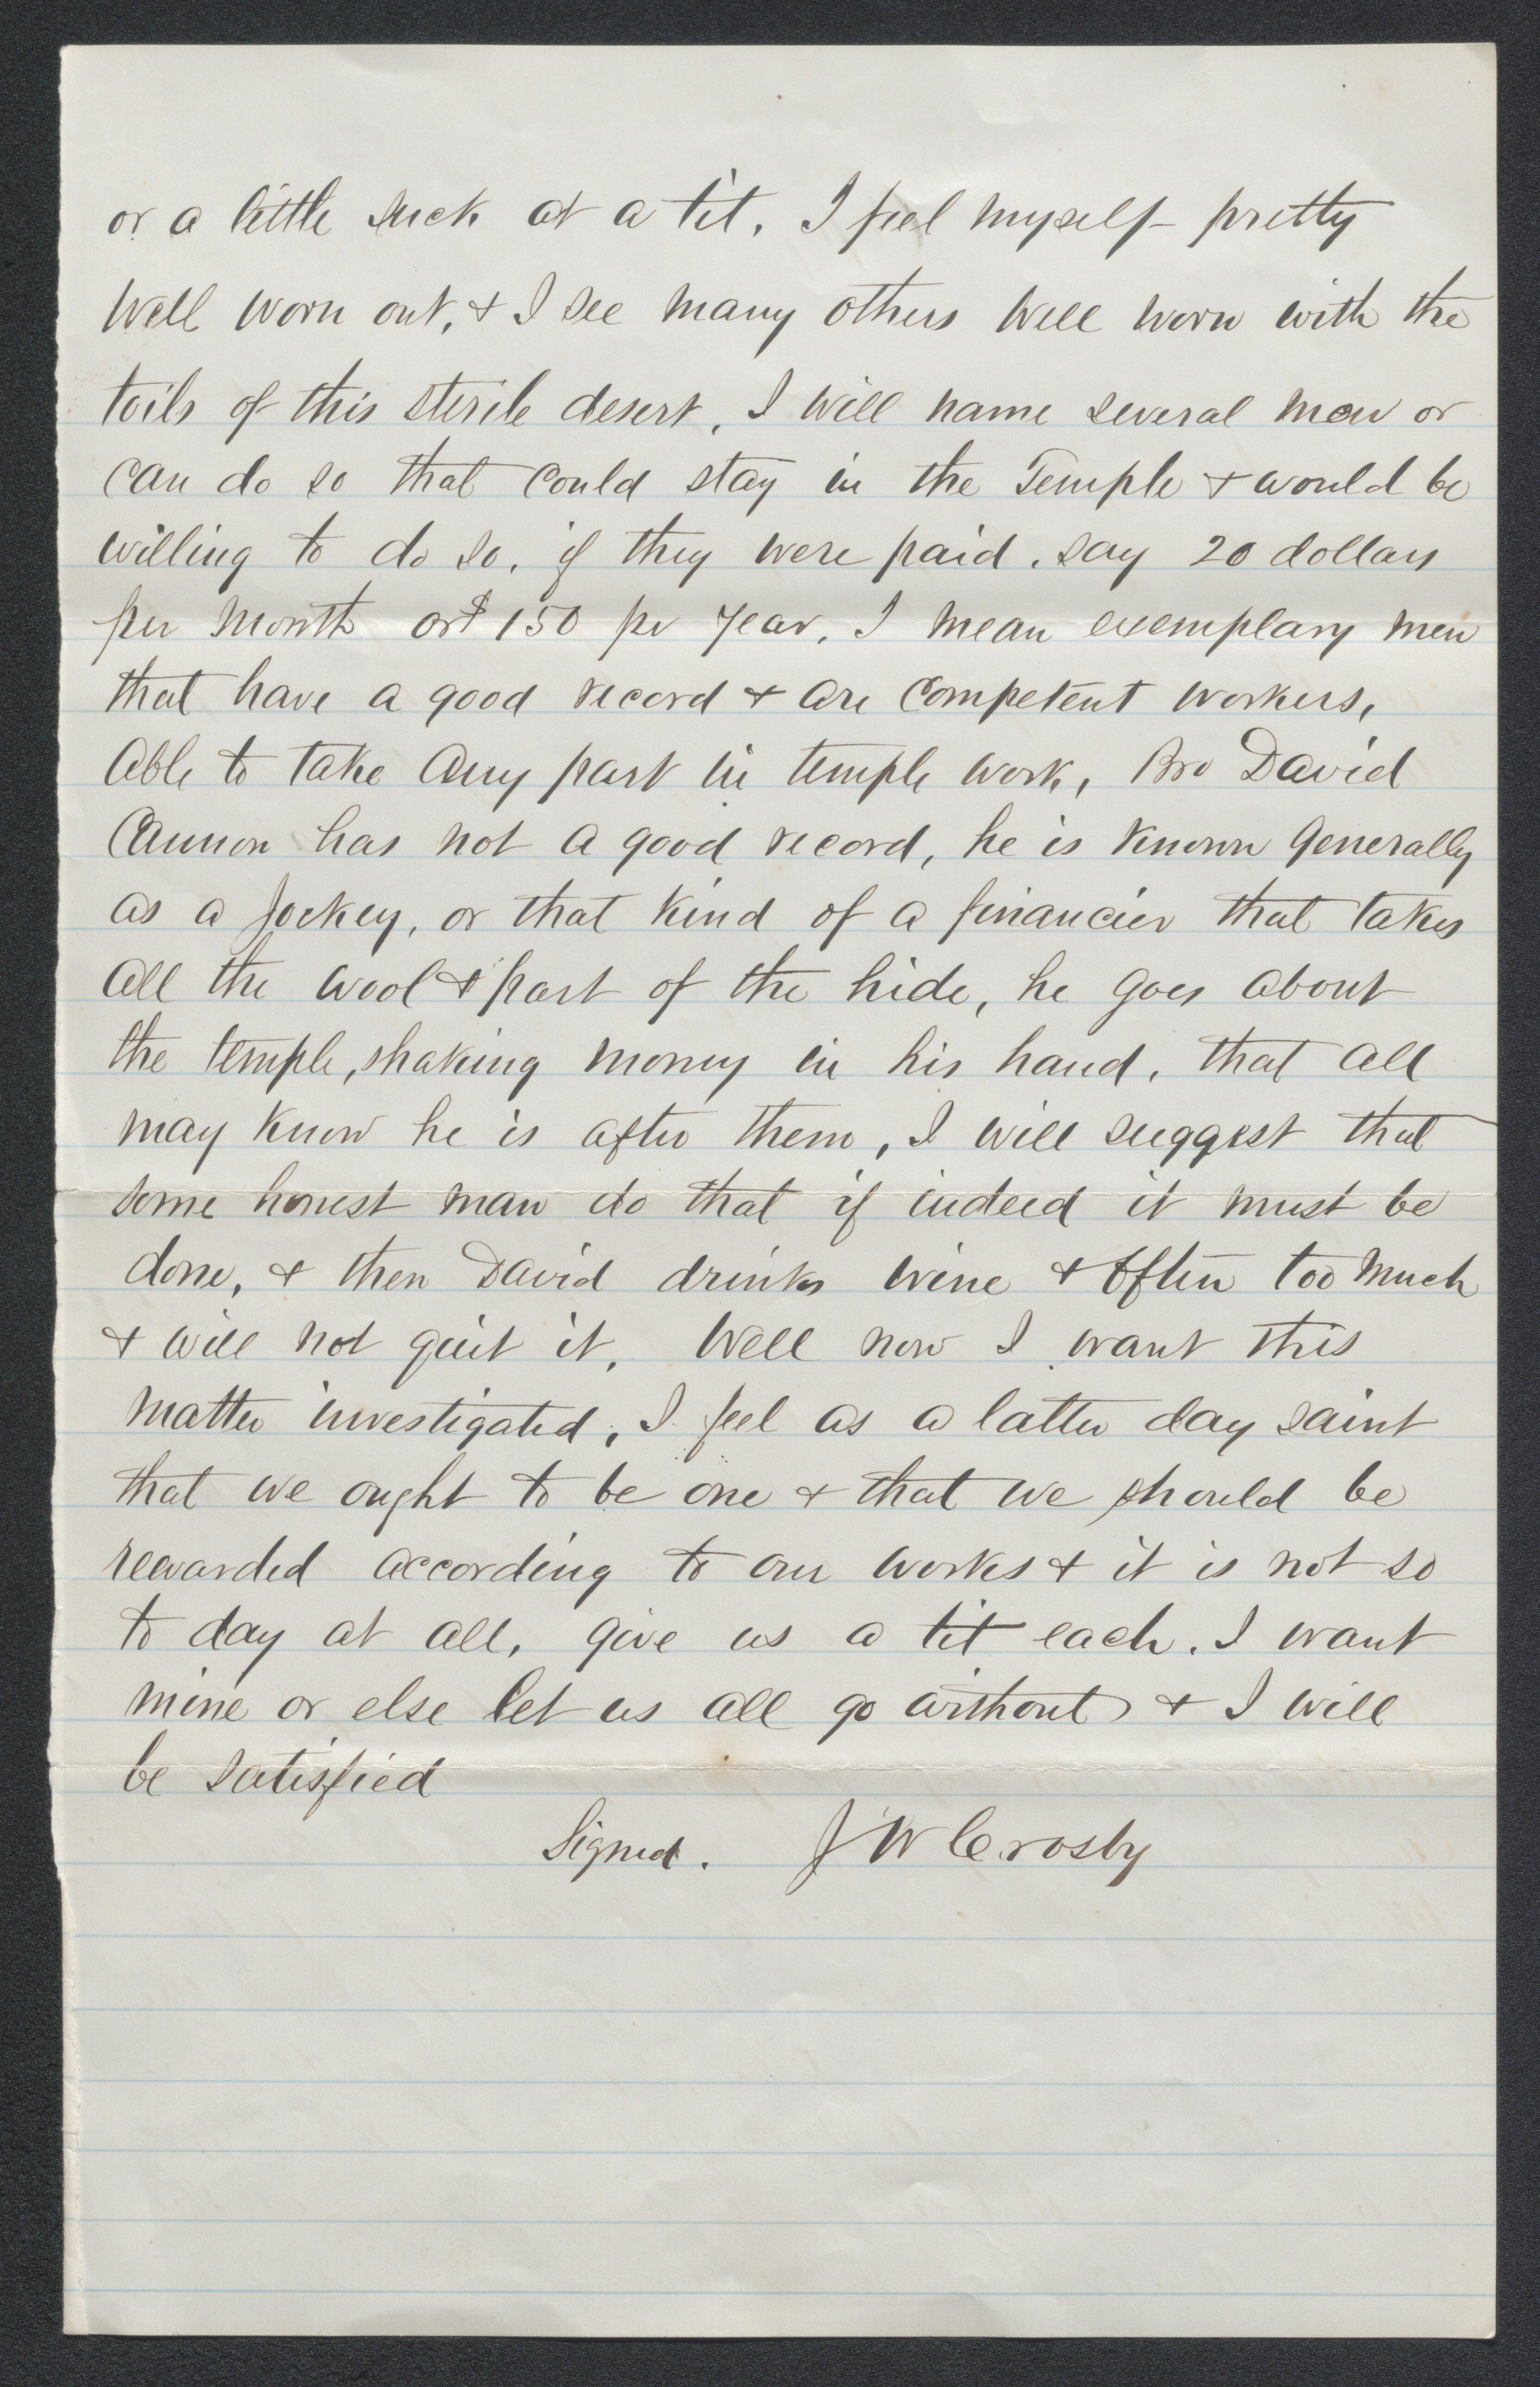 or a little suck at a tit, I feel myself pretty
well worn out, & I see many others well worn with the
toils of this sterile desert, I will name several men or
can do so that could stay in the Temple & would be
willing to do so, if they were paid, say 20 dollars
per month or $150 pr year, I mean exemplary men
that have a good record & are competent workers,
able to take any part in temple work, Bro David
Cannon has not a good record, he is known generally
as a Jockey, or that kind of a financier that takes
all the wool & part of the hide, he goes about
the temple, shaking money in his hand, that all
may know he is after them, I will suggest that
some honest man do that if indeed it must be
done, & then David drinks wine & often too much
& will not quit it, Well now I want this
matter investigated, I feel as a latter day saint
that we ought to be one & that we should be
rewarded according to our works & it is not so
to day at all, give us a tit each, I want
mine or else let us all go without & I will
be satisfied
Signed. J W Crosby